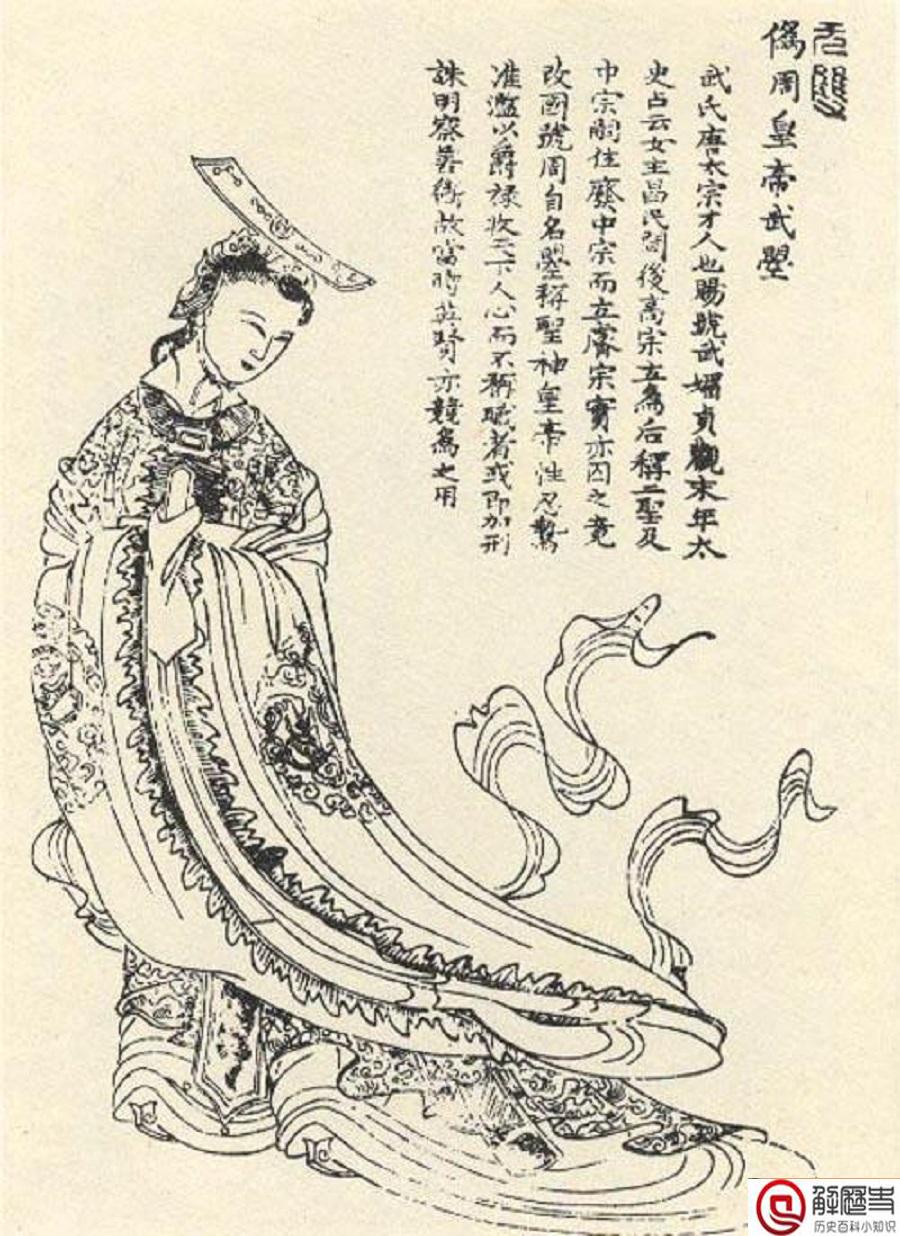 无雙
偽周皇帝武曌
武氏唐太宗才人也賜號武媚貞觀末年太
史占云女主昌民間後高宗立為后稱二聖及
中宗嗣位廢中宗而立睿宗實亦囚之竟
改國號周自名曌稱聖神皇帝性忍鷙
准濫以爵祿收天下人心而不稱職者或即加刑
誅明察善故當時英賢亦競為之用
解歷史
历史百科小知识